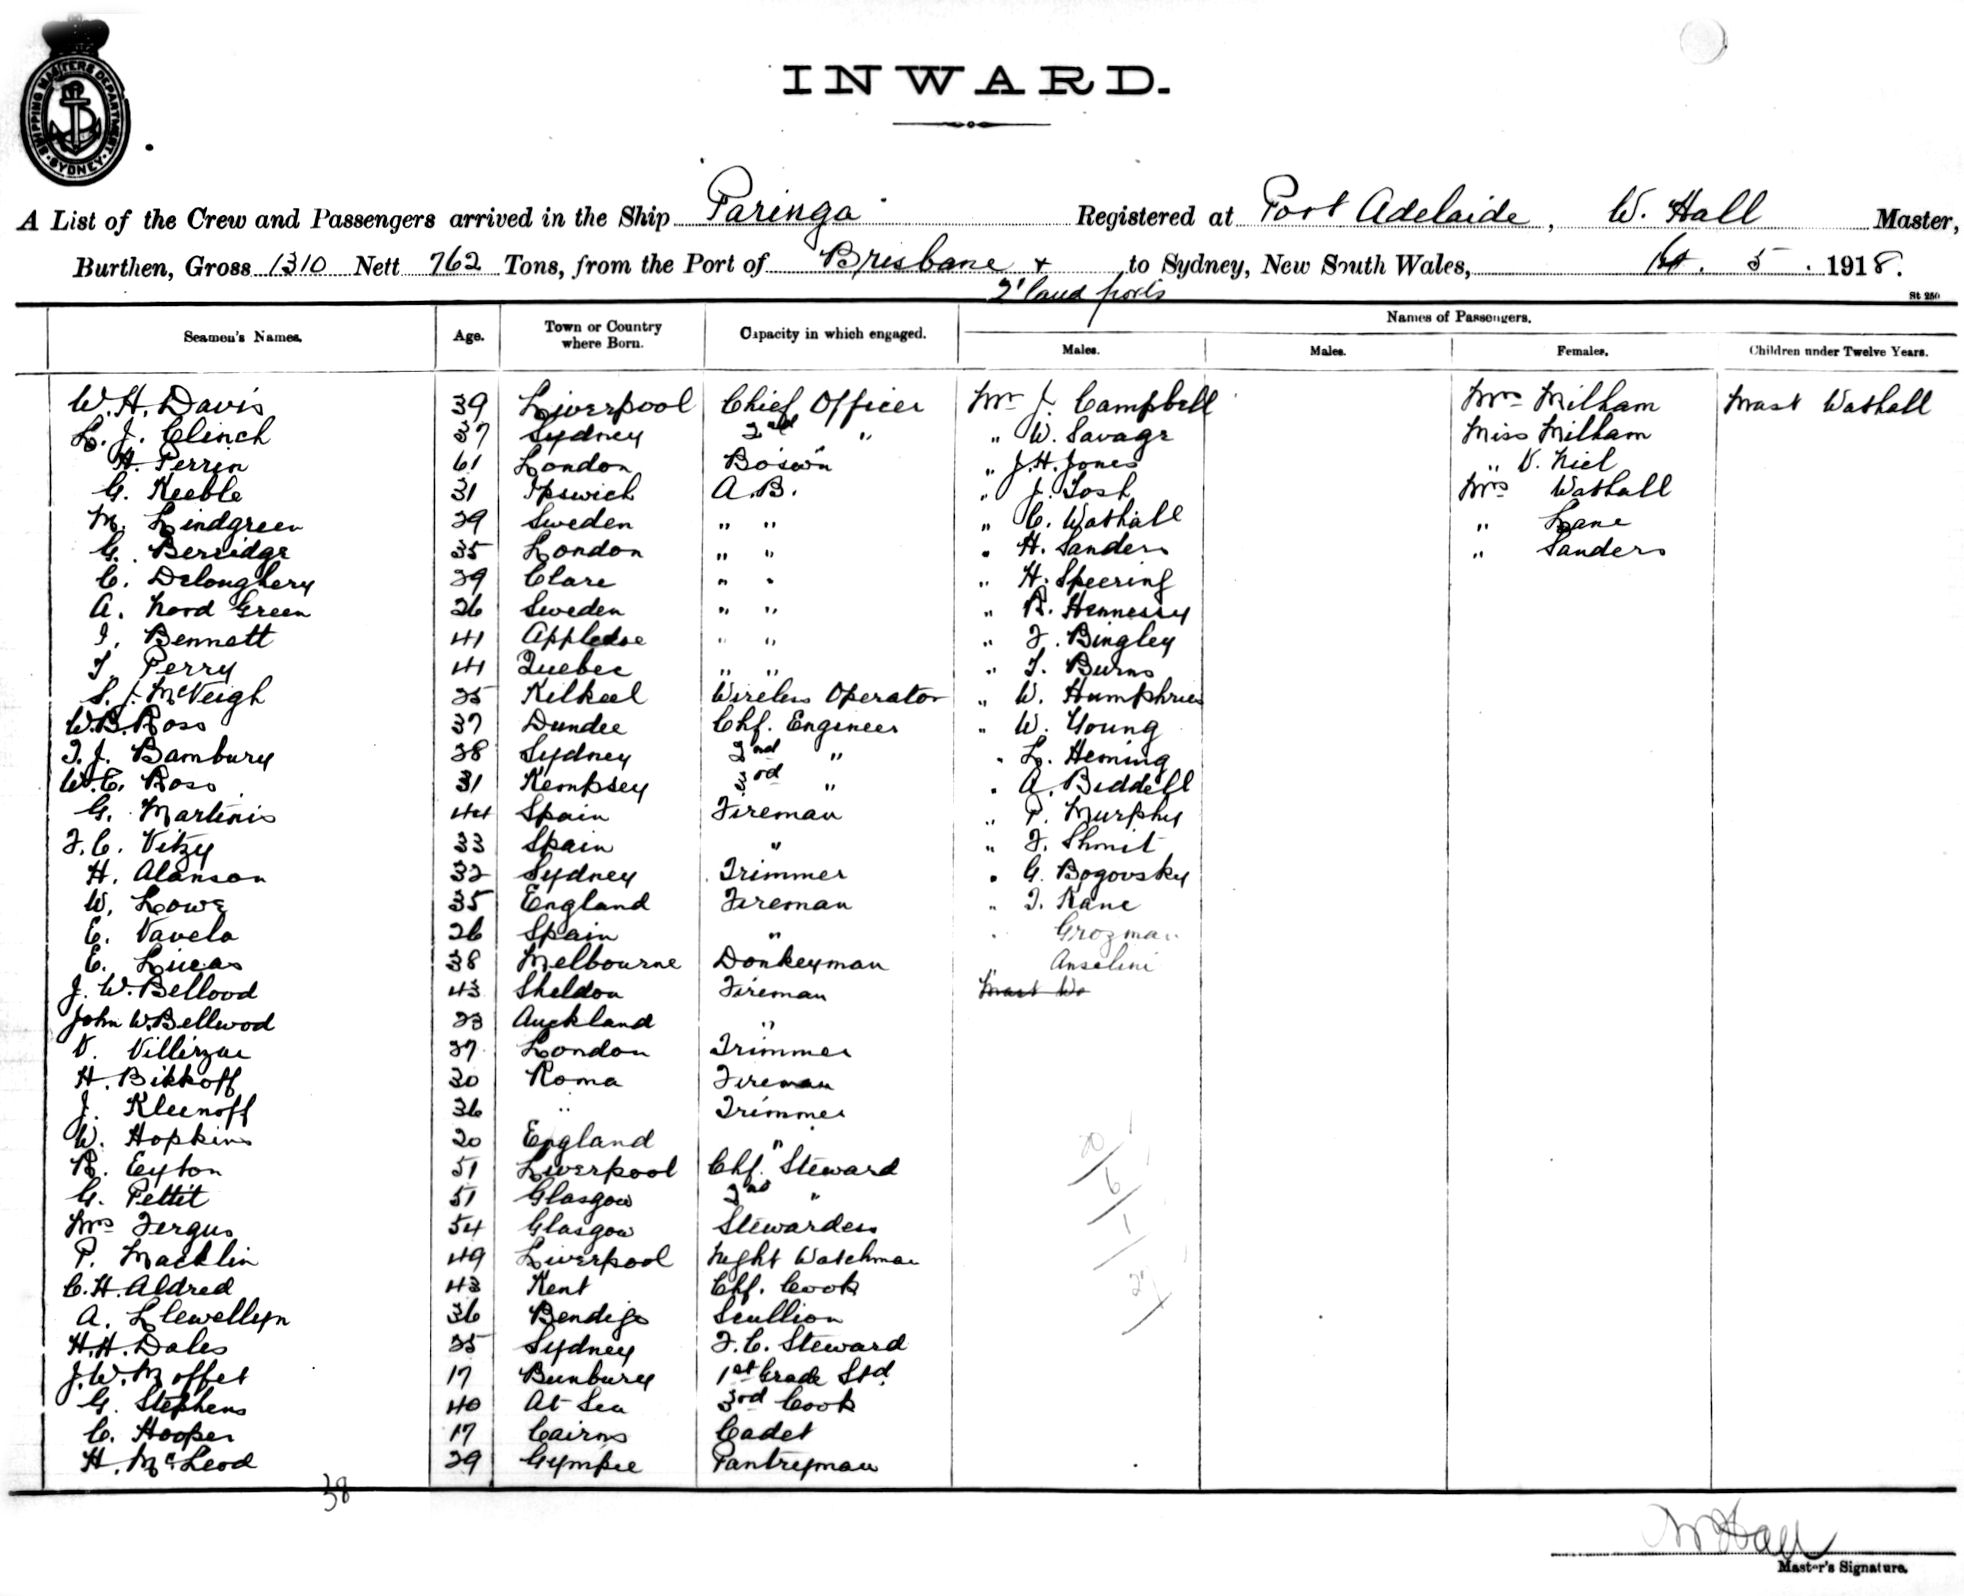 SHIPPING MASTERS DEPARTMENT · SYDNEY ·
INWARD.
A List of the Crew and Passengers arrived in the Ship Paringa Registered at Port Adelaide, W. Hall Master,
Burthen, Gross 1310 Nett 762 Tons, from the Port of Brisbane + to Sydney, New South Wales, 5. 1918.
Q'land ports
St 250
Seamen's Names. Age. Town or Country where Born. Capacity in which engaged. Names of Passengers.
Males. Males. Females. Children under Twelve Years.
W. H. Davis 39 Liverpool Chief Officer Mr J. Campbell Mrs Milham Mast Wathall
L. J. Clinch 37 Sydney 2nd " " W. Savage Miss Milham
H. Perrin 61 London Bos'wn " J. H. Jones " V. Niel
G. Keeble 31 Ipswich A.B. " J. Tosh Mrs Wathall
M. Lindgreen 29 Sweden " " " C. Wathall " Lane
G. Berridge 35 London " " " H. Sanders " Sanders
C. Deloughery 39 Clare " " " H. Speering
A. Nord Green 26 Sweden " " " R. Hennessy
I. Bennett 41 Appledoe " " " F. Bingley
T. Perry 41 Quebec " " " T. Burns
S. J. McVeigh 25 Kilkeel Wireless Operator " W. Humphries
W. B. Ross 37 Dundee Chf. Engineer " W. Young
T. J. Bambury 38 Sydney 2nd " " L. Heming
W. C. Ross 31 Kempsey 3rd " " A. Biddell
G. Martinis 44 Spain Fireman " P. Murphy
F. C. Vitzy 33 Spain " " F. Shmit
H. Alanson 32 Sydney Trimmer " G. Bogovsky
W. Lowe 35 England Fireman " T. Kane
E. Vavela 26 Spain " " Grozman
E. Lucas 38 Melbourne Donkeyman " Anselini
J. W. Bellood 43 Sheldon Fireman Mast Wa
John W. Bellwood 23 Auckland "
V. Villirzue 27 London Trimmer
H. Bikkoff 30 Roma Fireman
J. Kleenoff 36 " Trimmer
W. Hopkins 20 England "
R. Eyton 51 Liverpool Chf. Steward
G. Pettit 51 Glasgow 2nd "
Mrs Fergus 54 Glasgow Stewardess
P. Macklin 49 Liverpool Night Watchman
C. H. Aldred 43 Kent Chf. Cook
A. Llewellyn 36 Bendigo Scullion
H. H. Dales 25 Sydney F. C. Steward
J. W. Moffet 17 Bunbury 1st Grade Std.
G. Stephens 40 At Sea 3rd Cook
C. Hooper 17 Cairns Cadet
H. McLeod 29 Gympie Pantryman
20/6/1/27
38
W Hall
Master's Signature.